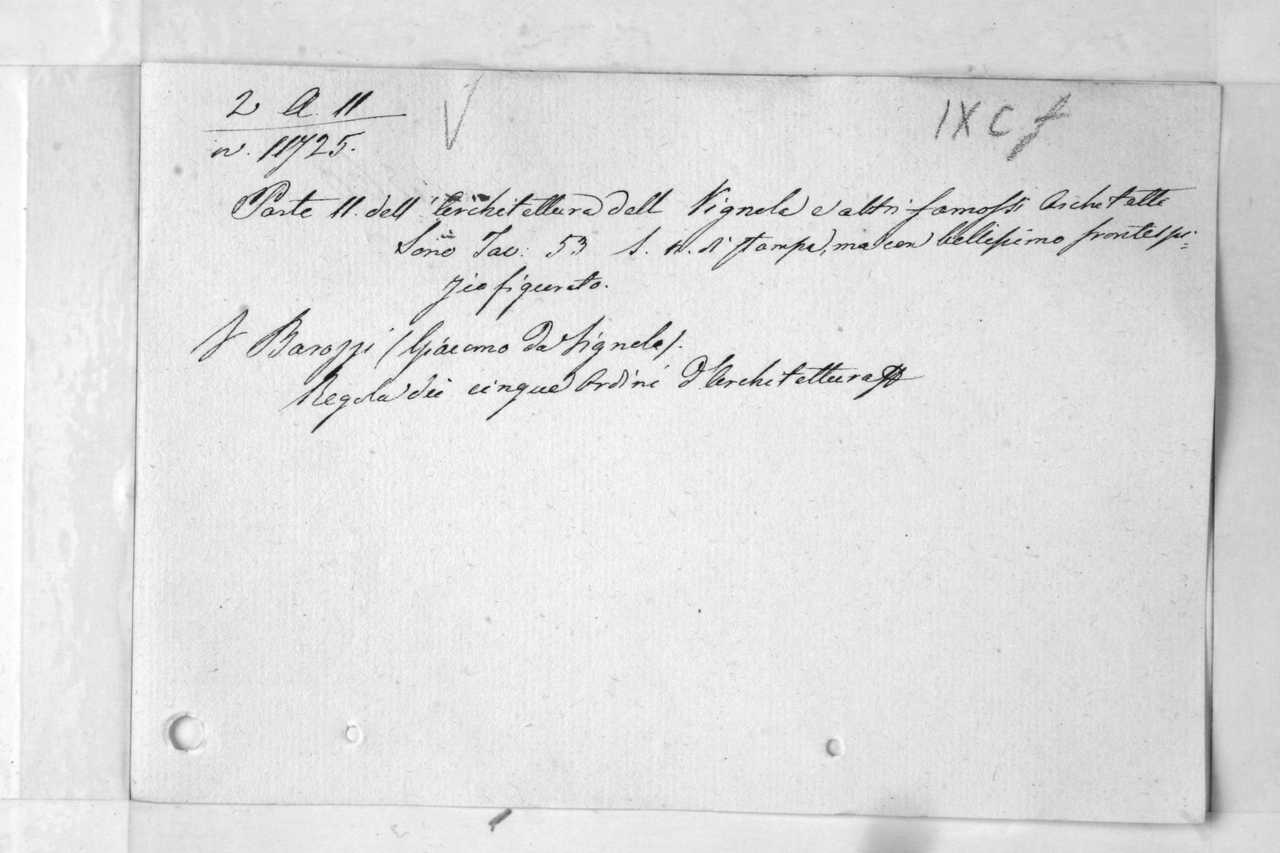 2 A. 11
IX C f
n. 11725.
Parte II. dell' Architettura dell Vignola e altri famossi Architetti
Sono Tav: 53 S. N. di stampa, ma con bellissimo frontespi=
zio figurato.
V Barozzi (Giacomo da Vignola).
Regola dei cinque Ordini d'Architettura